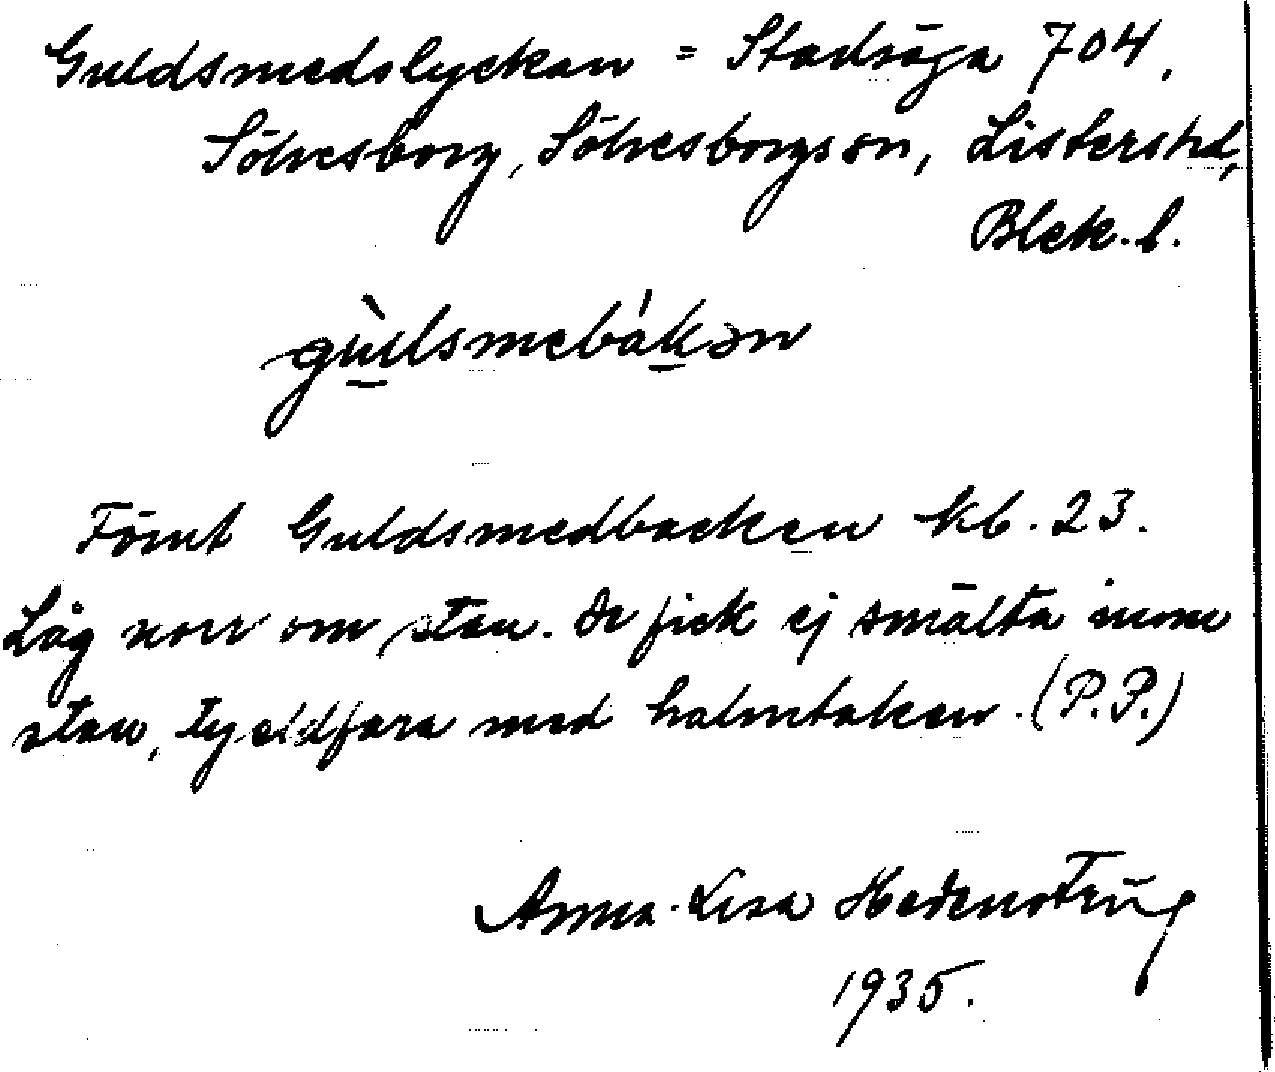 Guldsmedslyckan = Stadsäga 704.
Sölvesborg, Sölvesborgs sn, Listers hd,
Blek. l.
gùllsmebákən
Förut Guldsmedbacken kb. 23.
Låg norr om stan. De fick ej smälta inom
stan, ty eldfara med halmtaken. (P.P.)
Anna-Lisa
1935.